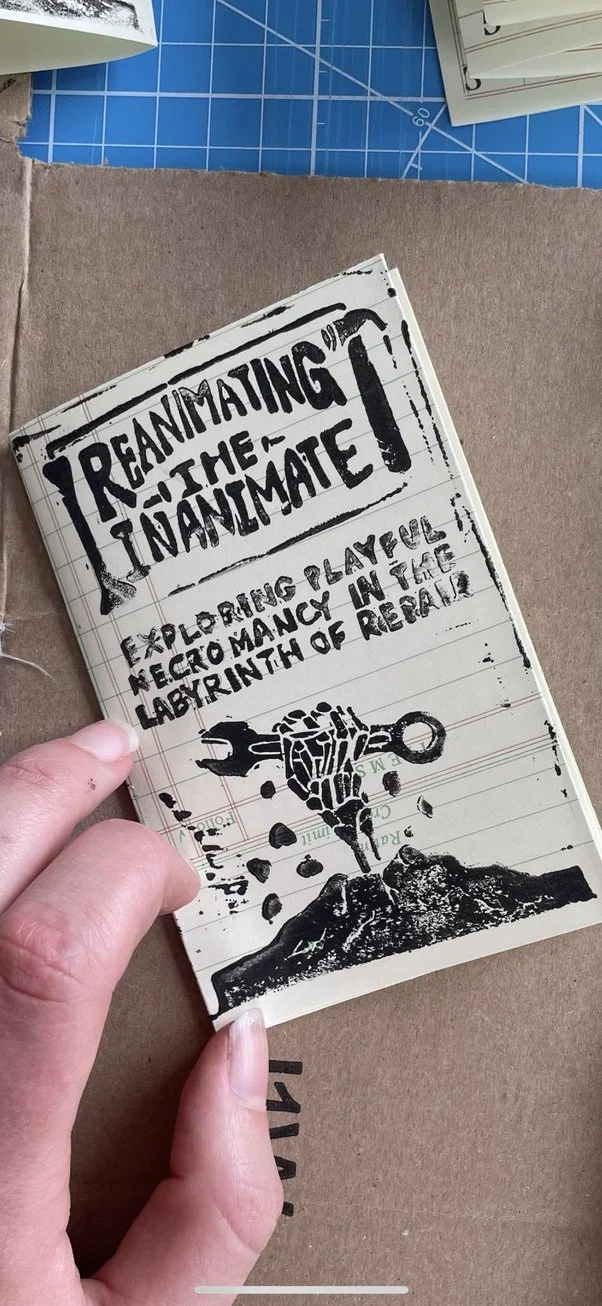 REANIMATING
THE
INANIMATE
EXPLORING PLAYFUL
NECROMANCY IN THE
LABYRINTH OF REPAIR
60